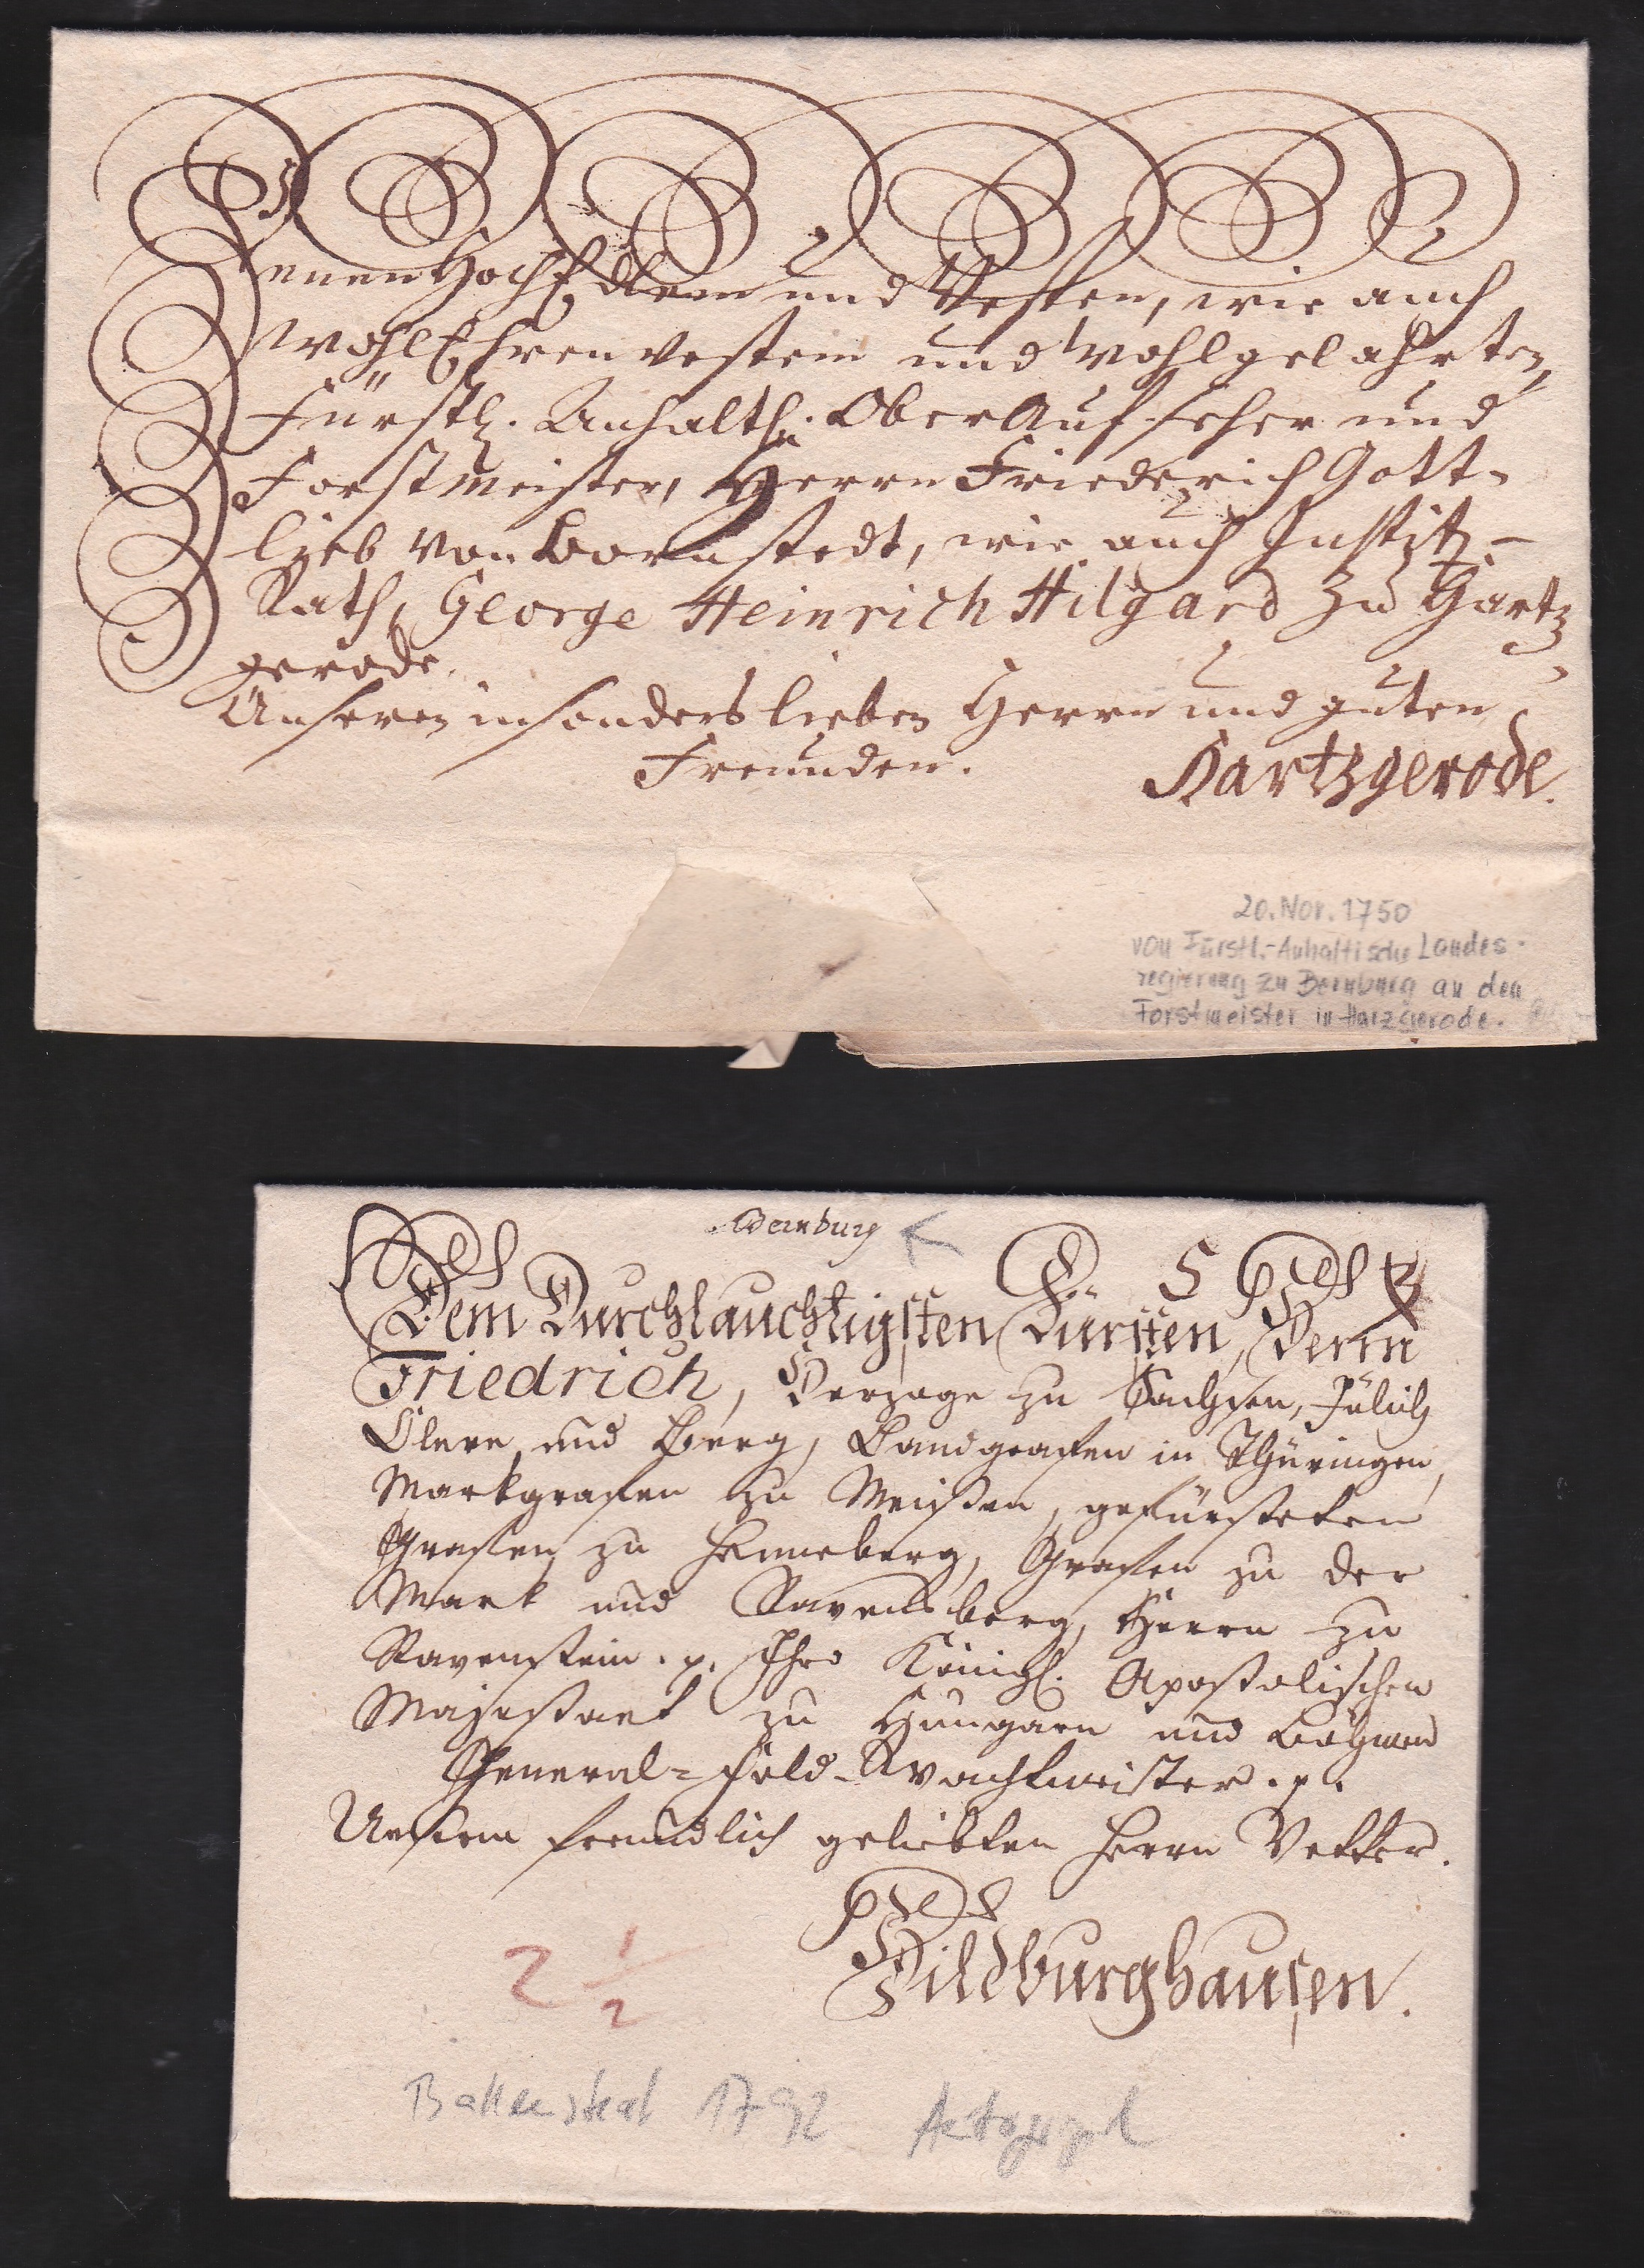 Denen HochEdlem und Vesten, wie auch
WohlEhrenvestem und Wohlgelahrten,
Fürstl. Anhalth. OberAufseher und
Forstmeister, Herrn Friederich Gott-
lieb von Bornstedt, wie auch Justitz-
Rath, George Heinrich Hilgard zu Hartz
gerode.
Unseren insonders lieben Herrn und guten
Freunden.
Hartzgerode.
20. Nov. 1750
von Fürstl.-Anhaltische Landes-
regierung zu Bernburg an den
Forstmeister in Harzgerode.
Bernburg
Dem Durchlauchtigsten Fürsten, Herrn
Friedrich, Herzoge zu Sachsen, Jülich
Cleve und Berg, Landgrafen in Thüringen,
Markgrafen zu Meißen, gefürsteten
Grafen zu Henneberg, Grafen zu der
Mark und Ravensberg, Herrn zu
Ravenstein. p. Ihro Königl. Apostolischen
Majestaet zu Hungarn und Böhmen
General-Feld-Wachtmeister. p.
Unserm freundlich geliebten Herrn Vetter.
Hildburghausen.
2 1/2
Ballenstedt 1792